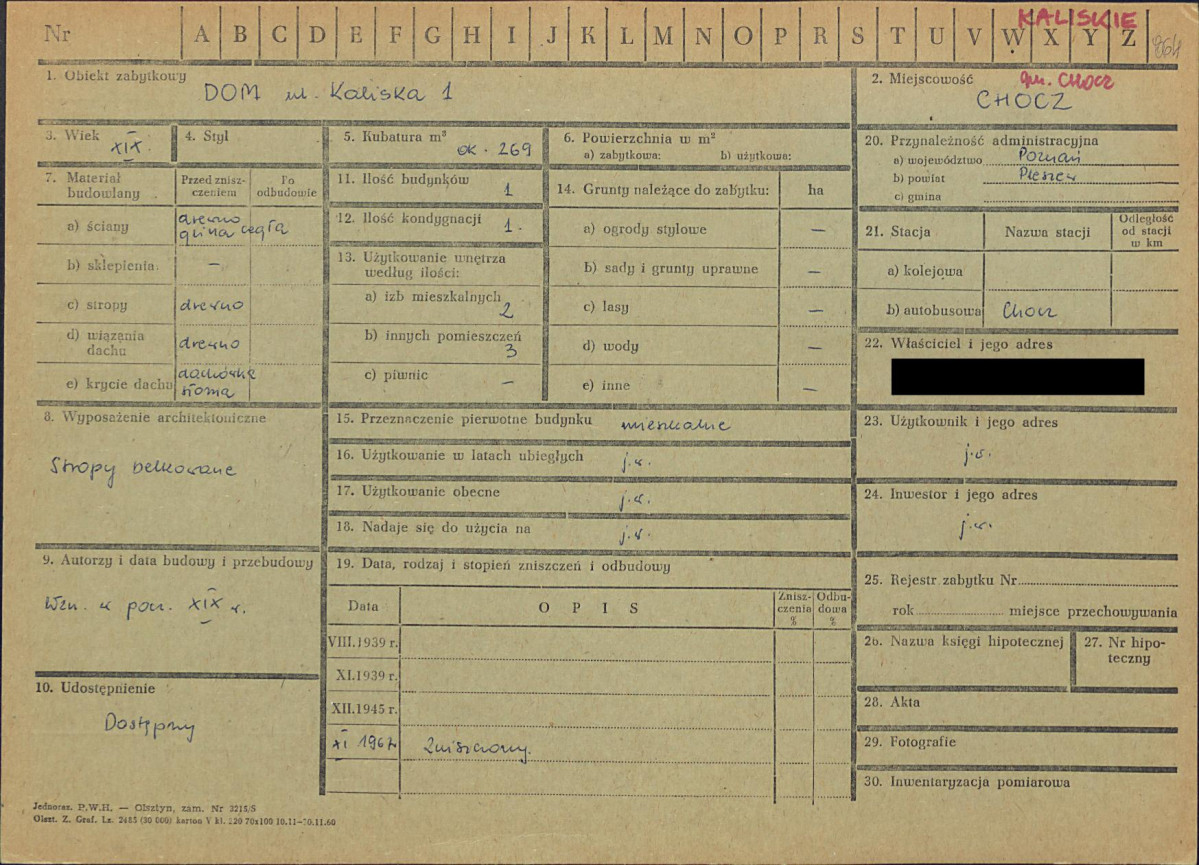 Nr A B C D E F G H I J K L M N O P R S T U V W X Y Z
KALISKIE
864
1. Obiekt zabytkowy
DOM ul. Kaliska 1
2. Miejscowość
gm. CHOCZ
CHOCZ
3. Wiek
XIX.
4. Styl
5. Kubatura m³
ok. 269
6. Powierzchnia w m²
a) zabytkowa: b) użytkowa:
20. Przynależność administracyjna
a) województwo Poznań
b) powiat Pleszew
c) gmina
7. Materiał budowlany
Przed zniszczeniem
Po odbudowie
a) ściany
drewno
glina cegła
b) sklepienia: —
c) stropy drewno
d) wiązania dachu drewno
e) krycie dachu
dachówka
słoma
11. Ilość budynków 1
12. Ilość kondygnacji 1.
13. Użytkowanie wnętrza
według ilości:
a) izb mieszkalnych
2
b) innych pomieszczeń
3
c) piwnic —
14. Grunty należące do zabytku: ha
a) ogrody stylowe —
b) sady i grunty uprawne —
c) lasy —
d) wody —
e) inne —
21. Stacja
Nazwa stacji
Odległość
od stacji
w km
a) kolejowa
b) autobusowa Chocz
22. Właściciel i jego adres
8. Wyposażenie architektoniczne
Stropy belkowane
15. Przeznaczenie pierwotne budynku mieszkalne
16. Użytkowanie w latach ubiegłych j.w.
17. Użytkowanie obecne j.w.
18. Nadaje się do użycia na j.w.
23. Użytkownik i jego adres
j.w.
24. Inwestor i jego adres
j.w.
9. Autorzy i data budowy i przebudowy
Wzn. w poł. XIX w.
19. Data, rodzaj i stopień zniszczeń i odbudowy
Data
O P I S
Zniszczenia
%
Odbudowa
%
VIII.1939 r.
XI.1939 r.
XII.1945 r.
XI 1967 Zniszczony.
25. Rejestr zabytku Nr
rok miejsce przechowywania
26. Nazwa księgi hipotecznej
27. Nr hipo-
teczny
10. Udostępnienie
Dostępny
28. Akta
29. Fotografie
30. Inwentaryzacja pomiarowa
Jednoraz. P.W.H. — Olsztyn, zam. Nr 3215/S
Olszt. Z. Graf. Lz. 2483 (30 000) karton V kl. 220 70x100 10.11-30.11.60